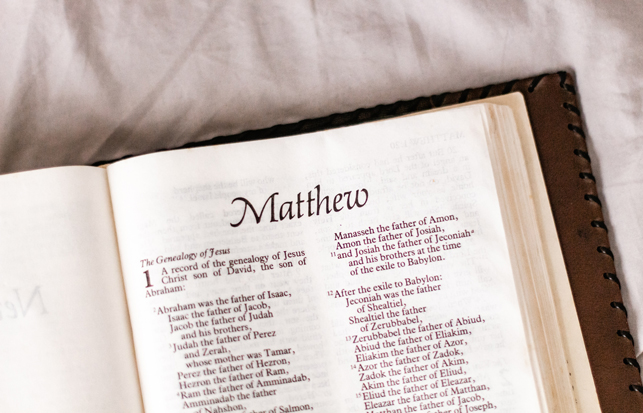 Matthew
The Genealogy of Jesus
1 A record of the genealogy of Jesus
Christ son of David, the son of
Abraham:
2Abraham was the father of Isaac,
Isaac the father of Jacob,
Jacob the father of Judah
and his brothers,
3Judah the father of Perez
and Zerah,
whose mother was Tamar,
Perez the father of Hezron,
Hezron the father of Ram,
4Ram the father of Amminadab,
Amminadab the father
of Nahshon,
father of Salmon,
Manasseh the father of Amon,
Amon the father of Josiah,
11and Josiah the father of Jeconiah
and his brothers at the time
of the exile to Babylon.
12After the exile to Babylon:
Jeconiah was the father
of Shealtiel,
Shealtiel the father
of Zerubbabel,
13Zerubbabel the father of Abiud,
Abiud the father of Eliakim,
Eliakim the father of Azor,
14Azor the father of Zadok,
Zadok the father of Akim,
Akim the father of Eliud,
15Eliud the father of Eleazar,
Eleazar the father of Matthan,
Matthan the father of Jacob,
father of Joseph,